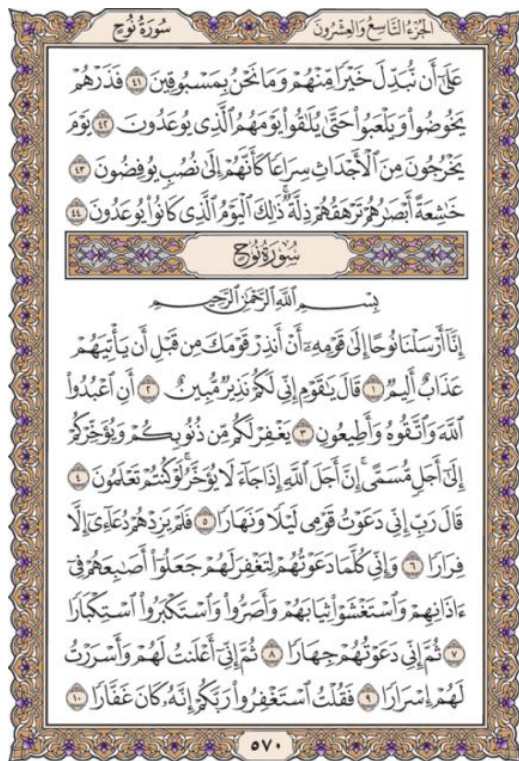 الجزء التاسع والعشرون
سورة نوح
عَلَىٰٓ أَن نُّبَدِّلَ خَيْرًا مِّنْهُمْ وَمَا نَحْنُ بِمَسْبُوقِينَ ٤١ فَذَرْهُمْ
يَخُوضُوا۟ وَيَلْعَبُوا۟ حَتَّىٰ يُلَٰقُوا۟ يَوْمَهُمُ ٱلَّذِى يُوعَدُونَ ٤٢ يَوْمَ
يَخْرُجُونَ مِنَ ٱلْأَجْدَاثِ سِرَاعًا كَأَنَّهُمْ إِلَىٰ نُصُبٍ يُوفِضُونَ ٤٣
خَٰشِعَةً أَبْصَٰرُهُمْ تَرْهَقُهُمْ ذِلَّةٌ ۚ ذَٰلِكَ ٱلْيَوْمُ ٱلَّذِى كَانُوا۟ يُوعَدُونَ ٤٤
سورة نوح
بِسْمِ ٱللَّهِ ٱلرَّحْمَٰنِ ٱلرَّحِيمِ
إِنَّآ أَرْسَلْنَا نُوحًا إِلَىٰ قَوْمِهِۦٓ أَنْ أَنذِرْ قَوْمَكَ مِن قَبْلِ أَن يَأْتِيَهُمْ
عَذَابٌ أَلِيمٌ ١ قَالَ يَٰقَوْمِ إِنِّى لَكُمْ نَذِيرٌ مُّبِينٌ ٢ أَنِ ٱعْبُدُوا۟
ٱللَّهَ وَٱتَّقُوهُ وَأَطِيعُونِ ٣ يَغْفِرْ لَكُم مِّن ذُنُوبِكُمْ وَيُؤَخِّرْكُمْ
إِلَىٰٓ أَجَلٍ مُّسَمًّى ۚ إِنَّ أَجَلَ ٱللَّهِ إِذَا جَآءَ لَا يُؤَخَّرُ ۖ لَوْ كُنتُمْ تَعْلَمُونَ ٤
قَالَ رَبِّ إِنِّى دَعَوْتُ قَوْمِى لَيْلًا وَنَهَارًا ٥ فَلَمْ يَزِدْهُمْ دُعَآءِىٓ إِلَّا
فِرَارًا ٦ وَإِنِّى كُلَّمَا دَعَوْتُهُمْ لِتَغْفِرَ لَهُمْ جَعَلُوٓا۟ أَصَٰبِعَهُمْ فِىٓ
ءَاذَانِهِمْ وَٱسْتَغْشَوْا۟ ثِيَابَهُمْ وَأَصَرُّوا۟ وَٱسْتَكْبَرُوا۟ ٱسْتِكْبَارًا
٧ ثُمَّ إِنِّى دَعَوْتُهُمْ جِهَارًا ٨ ثُمَّ إِنِّىٓ أَعْلَنتُ لَهُمْ وَأَسْرَرْتُ
لَهُمْ إِسْرَارًا ٩ فَقُلْتُ ٱسْتَغْفِرُوا۟ رَبَّكُمْ إِنَّهُۥ كَانَ غَفَّارًا ١٠
٥٧٠